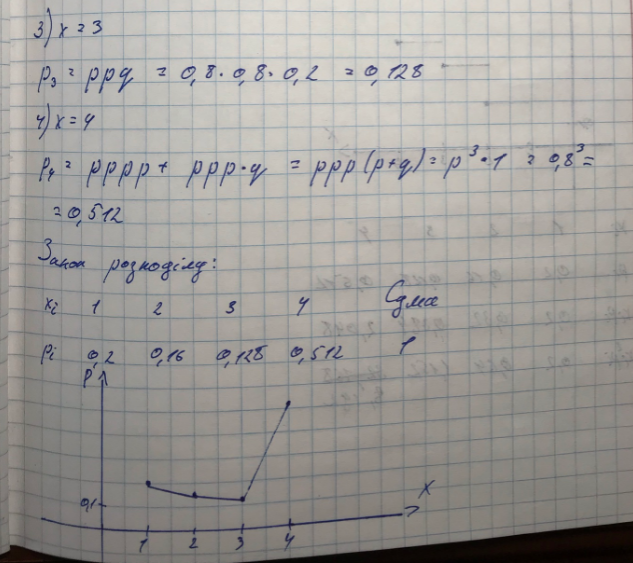 3) x = 3
p₃ = ppq = 0,8 · 0,8 · 0,2 = 0,128
4) x = 4
p₄ = pppp + ppp·q = ppp(p+q) = p³ · 1 = 0,8³ =
= 0,512
Закон розподілу:
xi 1 2 3 4 Сума
pi 0,2 0,16 0,128 0,512 1
P
0,1
X
1 2 3 4